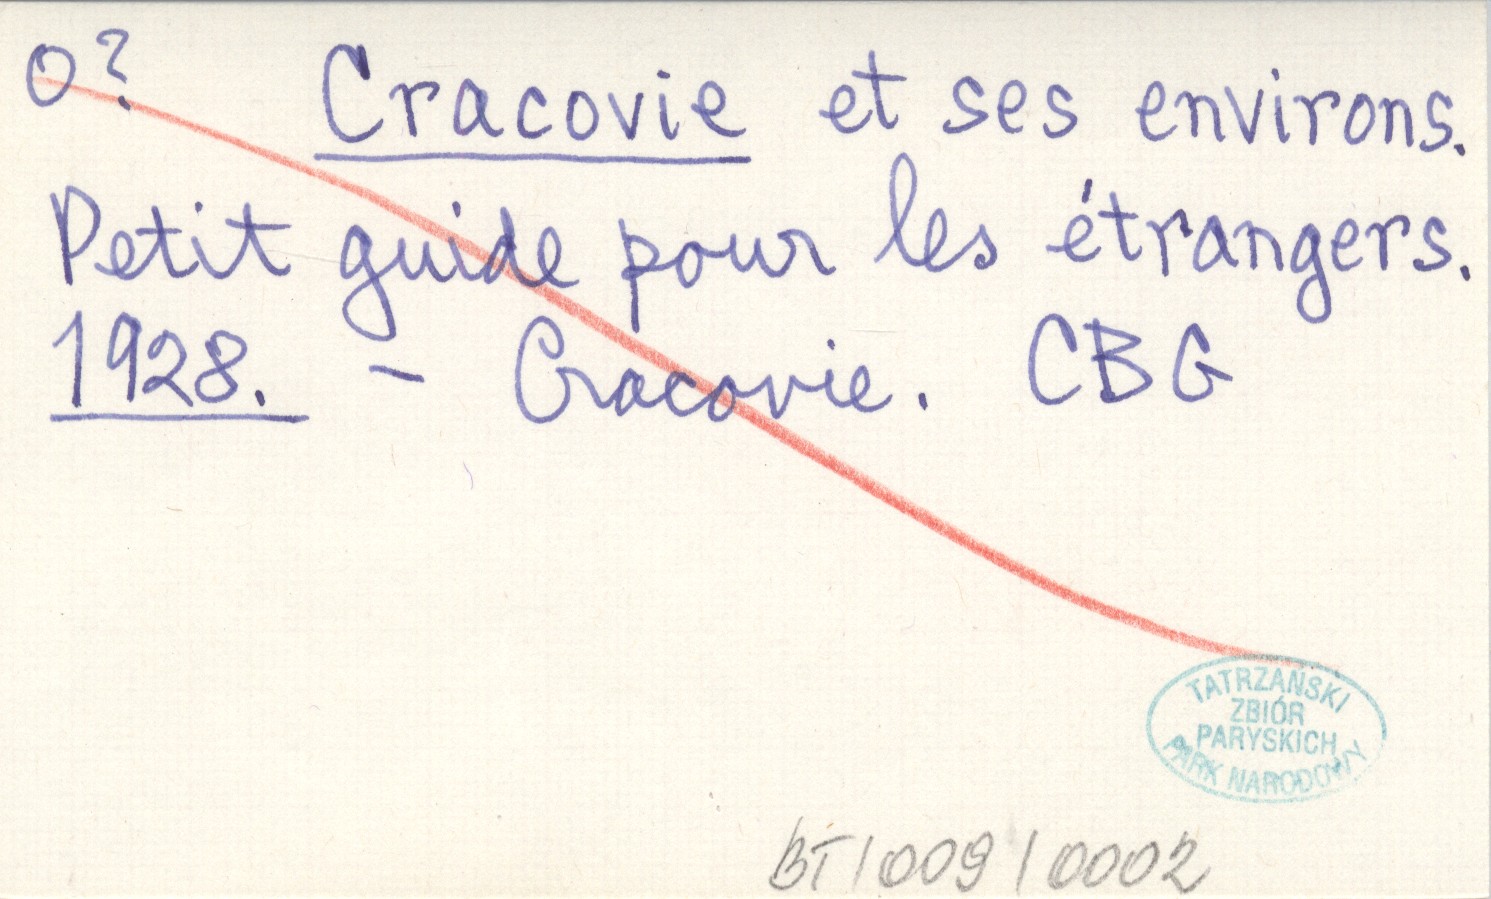 O? Cracovie et ses environs.
Petit guide pour les étrangers.
1928. - Cracovie. CBG
TATRZAŃSKI
ZBIÓR
PARYSKICH
PARK NARODOWY
BT/009/0002